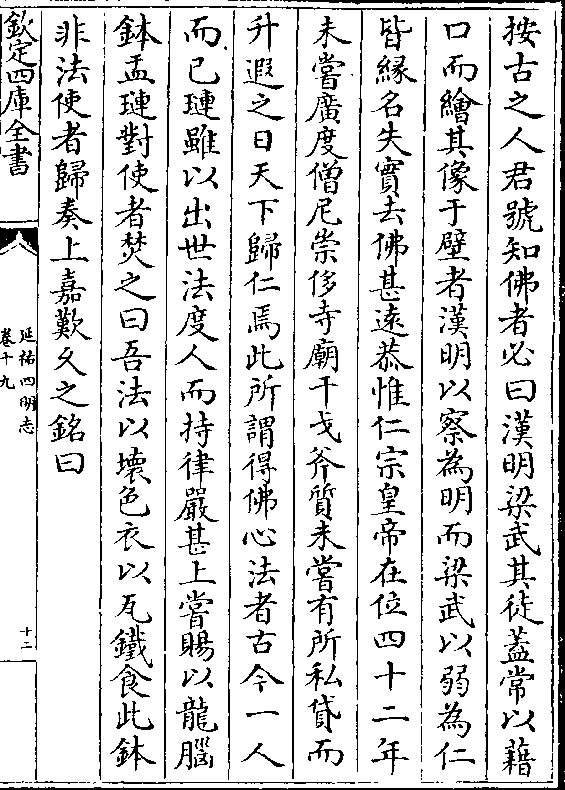 按古之人君號知佛者必曰漢明梁武其徒蓋常以藉
口而繪其像于壁者漢明以察為明而梁武以弱為仁
皆縁名失實去佛甚逺恭惟仁宗皇帝在位四十二年
未嘗廣度僧尼崇侈寺廟干戈斧質未嘗有所私貸而
升遐之日天下歸仁焉此所謂得佛心法者古今一人
而已璉雖以出世法度人而持律嚴甚上嘗賜以龍腦
鉢盂璉對使者焚之曰吾法以壊色衣以瓦鐵食此鉢
非法使者歸奏上嘉歎久之銘曰
欽定四庫全書
延祐四明志
卷十九
十二